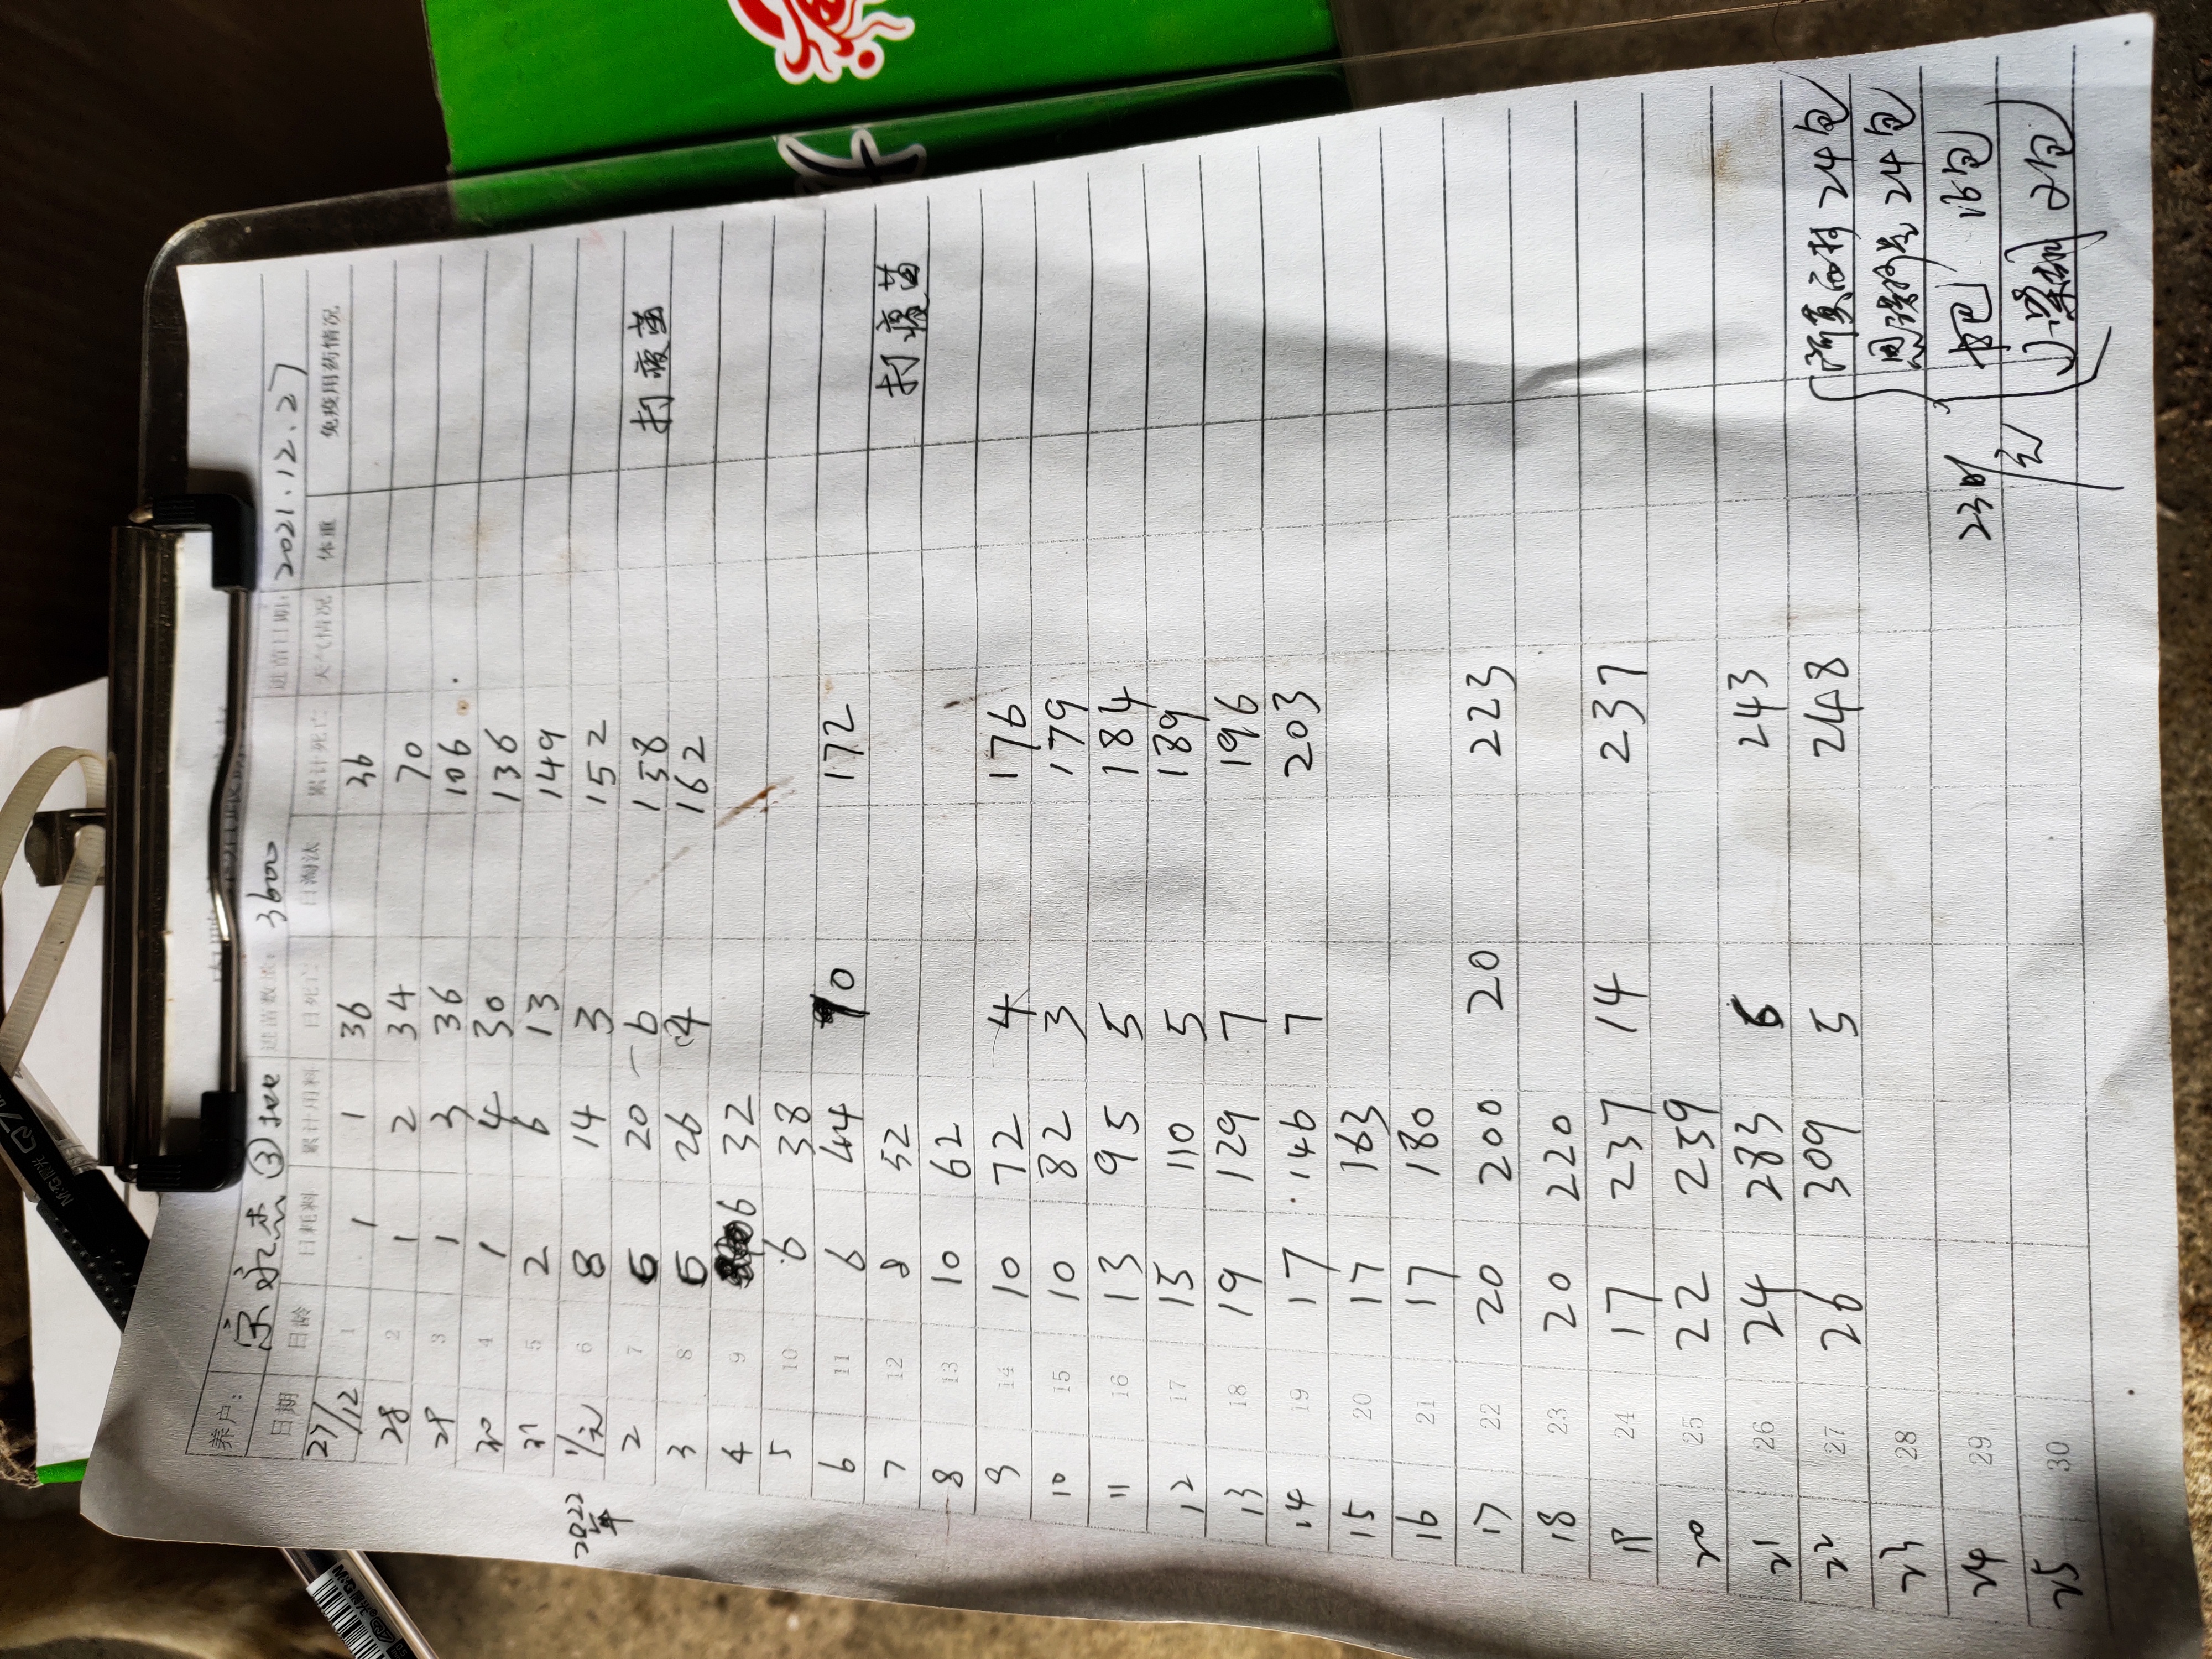 养户: 宗永杰 ③ 进苗数量: 3600 进苗日期: 2021.12.27
日期 日龄 日耗料 累计用料 日死亡 日淘汰 累计死亡 天气情况 体重 免疫用药情况
27/12 1 1 1 36 36
28 2 1 2 34 70
29 3 1 3 36 106
30 4 1 4 30 136
31 5 2 6 13 149
2022年 1/元 6 8 14 3 152
2 7 6 20 6 158 打疫苗
3 8 6 26 4 162
4 9 6 32
5 10 6 38
6 11 6 44 10 172
7 12 8 52 打疫苗
8 13 10 62
9 14 10 72 4 176
10 15 10 82 3 179
11 16 13 95 5 184
12 17 15 110 5 189
13 18 19 129 7 196
14 19 17 146 7 203
15 20 17 163
16 21 17 180
17 22 20 200 20 223
18 23 20 220
19 24 17 237 14 237
20 25 22 259
21 26 24 283 6 243
22 27 26 309 5 248 阿莫西林 24包
23 28 24包
24 29 23时 16包
25 30 2包
M&G晨光
M&G晨光